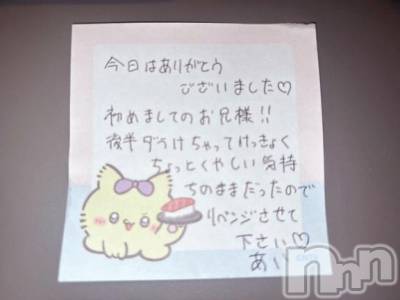 今日はありがとう
ございました♡
初めましてのお兄様!!
後半ダラけちゃってけっきょく
ちょっとくやしい気持
ちのままだったので
リベンジさせて
下さい♡
あい